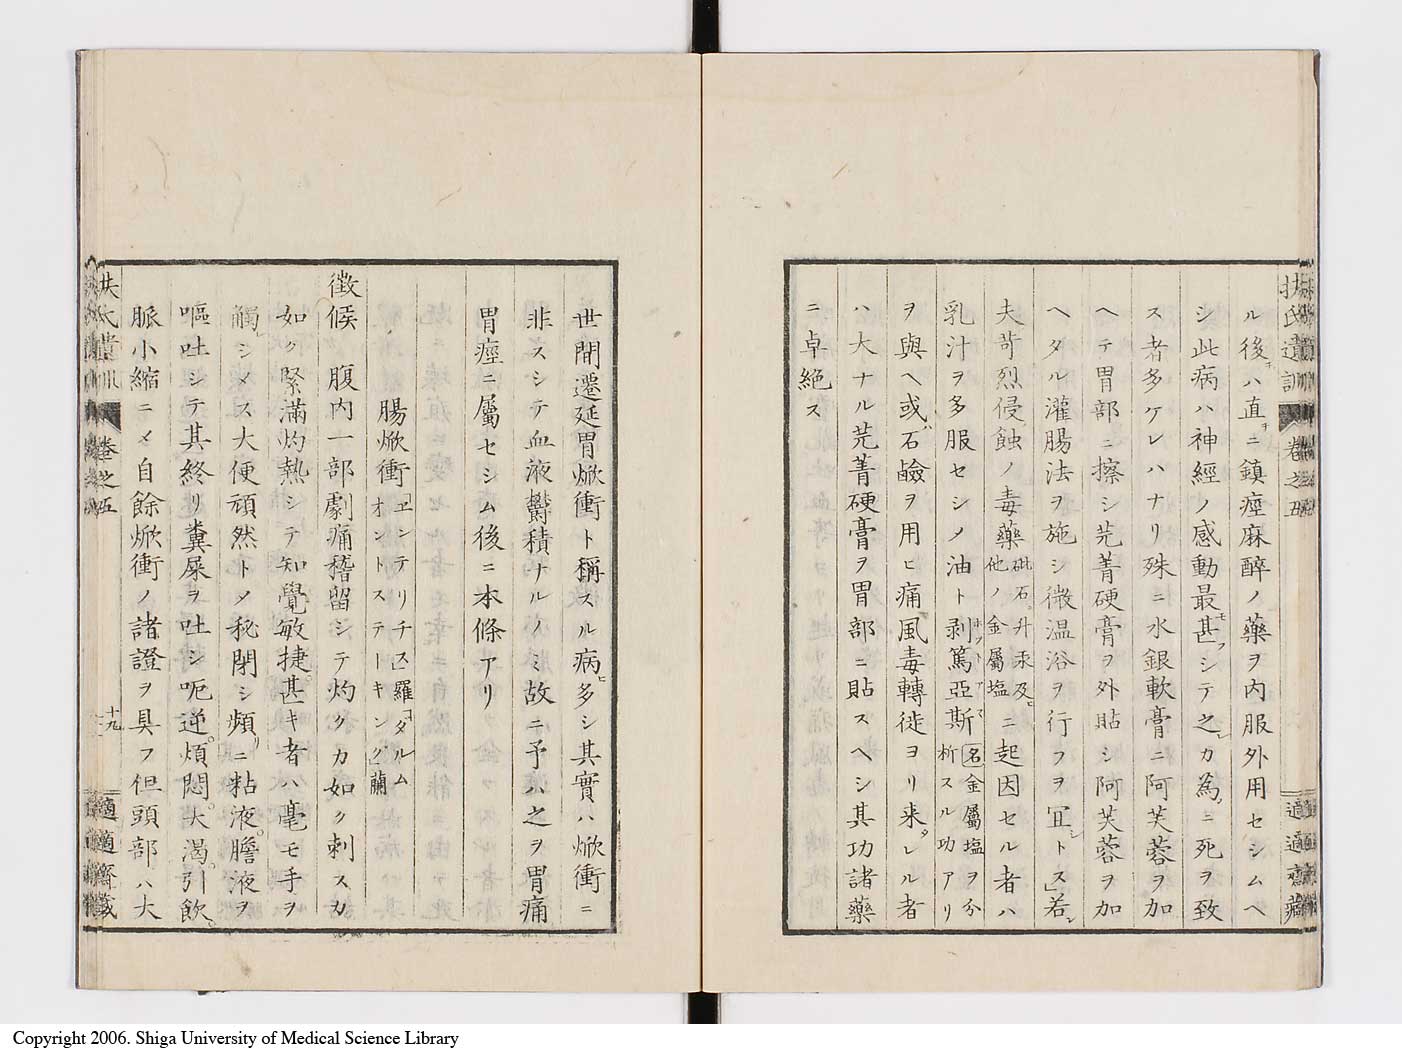 扶氏遺訓 巻之五 適適齋藏
ル後ハ直ニ鎮痙麻醉ノ藥ヲ内服外用セシムヘ
シ此病ハ神經ノ感動最甚フシテ之カ為ニ死ヲ致
ス者多ケレハナリ殊ニ水銀軟膏ニ阿芙蓉ヲ加
ヘテ胃部ニ擦シ芫菁硬膏ヲ外貼シ阿芙蓉ヲ加
ヘタル灌腸法ヲ施シ微温浴ヲ行フヲ冝トス」若シ
夫苛烈侵蝕ノ毒藥砒石升汞及ヒ他ノ金屬塩ニ起因セル者ハ
乳汁ヲ多服セシノ油ト剥篤亞斯名金屬塩ヲ分析スル功アリ
ヲ與ヘ或ハ石鹼ヲ用ヒ痛風毒轉徙ヨリ来レル者
ハ大ナル芫菁硬膏ヲ胃部ニ貼スヘシ其功諸藥
ニ卓絶ス
世間遷延胃焮衝ト稱スル病多シ其實ハ焮衝ニ
非スシテ血液欝積ナルノミ故ニ予ハ之ヲ胃痛
胃痙ニ屬セシム後ニ本條アリ
腸焮衝「エンテリチス」羅「ダルムオントステーキング」蘭
徴候 腹内一部劇痛稽留シテ灼クカ如ク刺スカ
如ク緊滿灼熱シテ知覺敏捷甚キ者ハ毫モ手ヲ
觸シメス大便頑然トメ秘閉シ頻リニ粘液膽液ヲ
嘔吐シテ其終リ糞屎ヲ吐シ呃逆煩悶大渇引飲
脈小縮ニメ自餘焮衝ノ諸證ヲ具フ但頭部ハ大
扶氏遺訓 巻之五 十九 適適齋藏
Copyright 2006. Shiga University of Medical Science Library